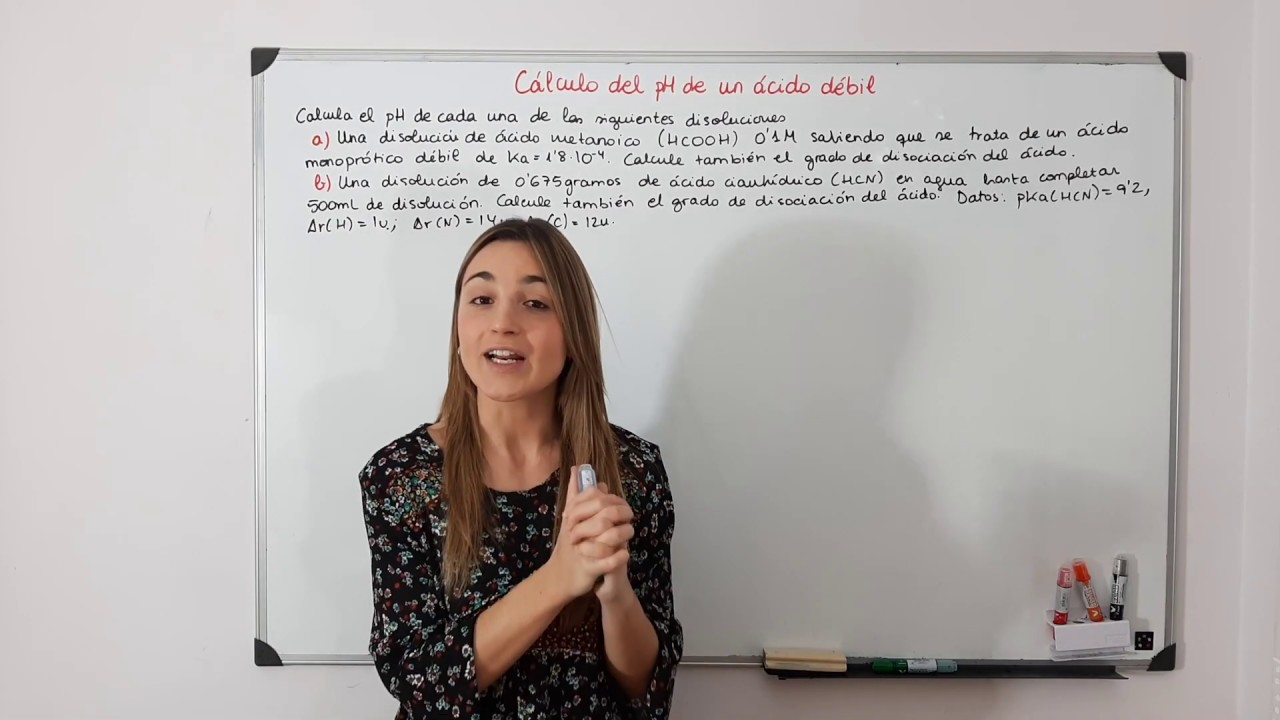 Cálculo del pH de un ácido débil
Calcula el pH de cada una de las siguientes disoluciones
a) Una disolución de ácido metanoico (HCOOH) 0'1M sabiendo que se trata de un ácido
monoprótico débil de Ka = 1'8·10⁻⁴. Calcule también el grado de disociación del ácido.
b) Una disolución de 0'675gramos de ácido cianhídrico (HCN) en agua hasta completar
500mL de disolución. Calcule también el grado de disociación del ácido. Datos: pKa(HCN)=9'2,
Ar(H) = 1u.; Ar(N) = 14 (C) = 12u.